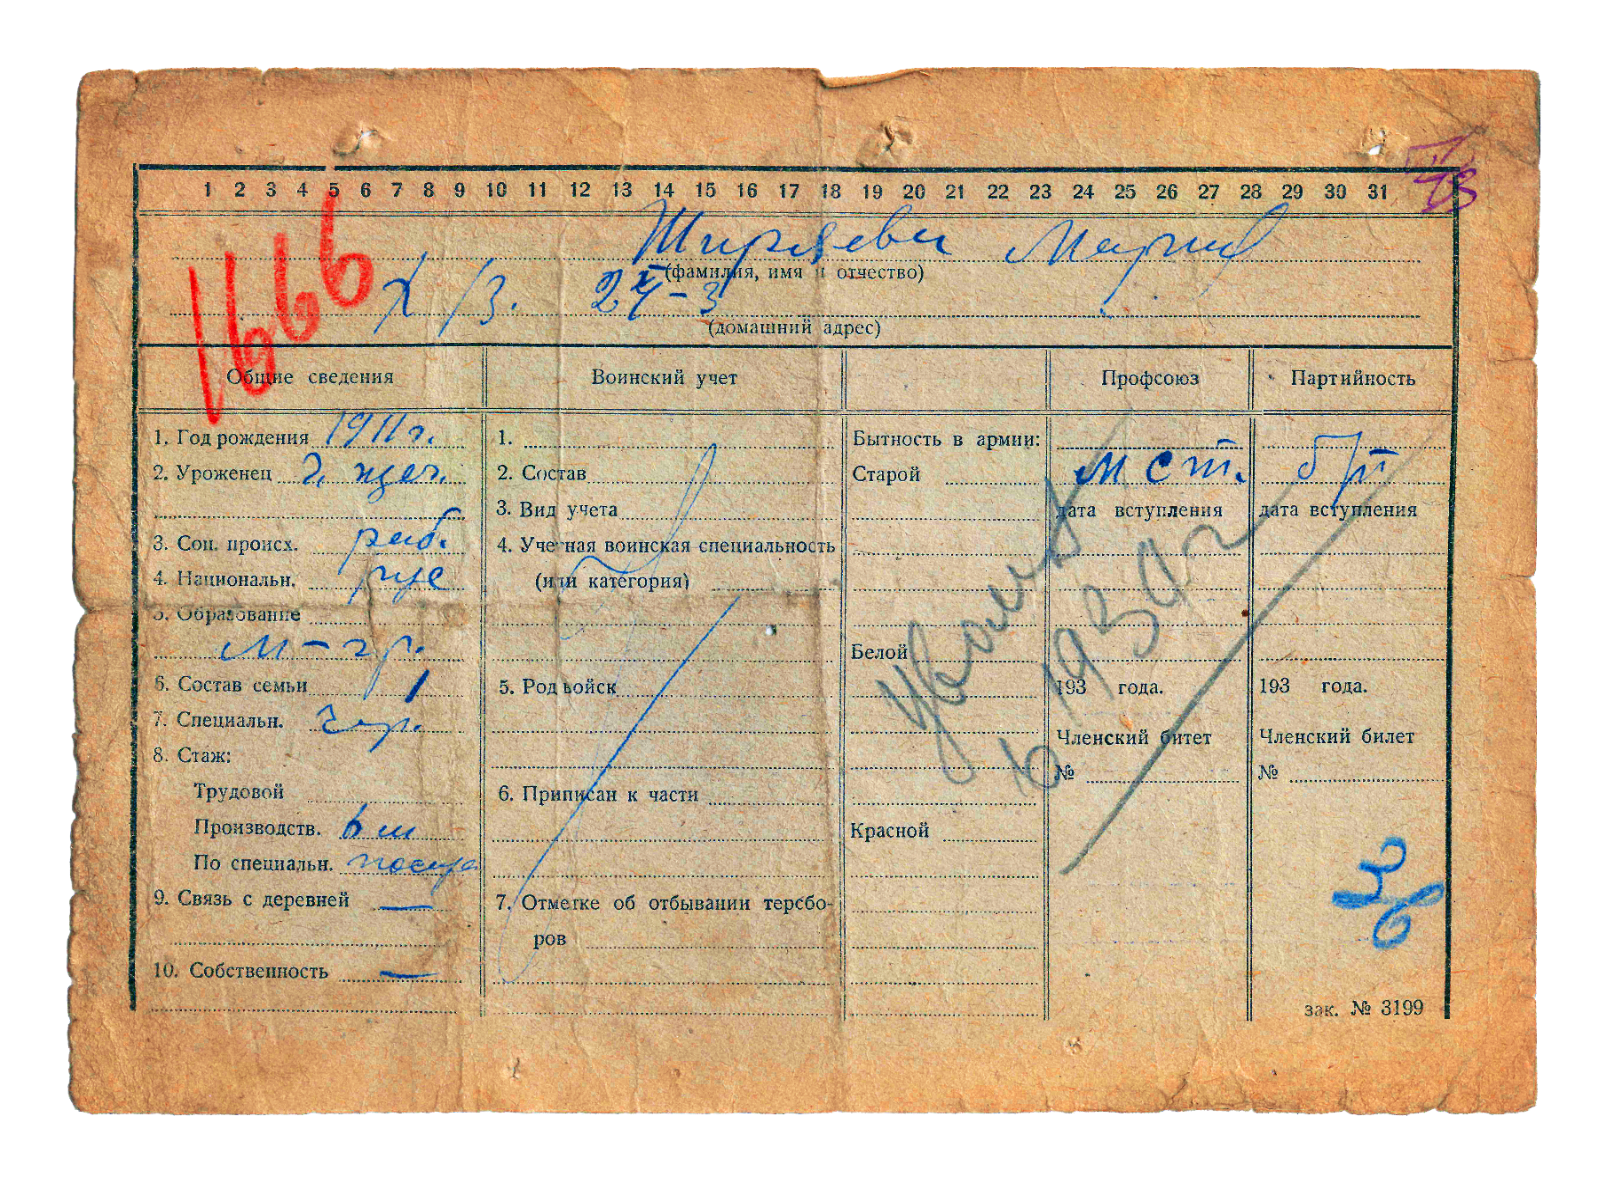 1 2 3 4 5 6 7 8 9 10 11 12 13 14 15 16 17 18 19 20 21 22 23 24 25 26 27 28 29 30 31
1666
Ширяева Мария
(фамилия, имя и отчество)
(домашний адрес)
Общие сведения
1. Год рождения 1911 г.
2. Уроженец
3. Соц. происх. раб.
4. Национальн. рус
5. Образование
м-гр.
6. Состав семьи 1
7. Специальн. чер.
8. Стаж:
Трудовой
Производств. 6 м
По специальн.
9. Связь с деревней —
10. Собственность —
Воинский учет
1.
2. Состав
3. Вид учета
4. Учетная воинская специальность
(или категория)
5. Род войск
6. Приписан к части
7. Отметке об отбывании терсбо-
ров
Бытность в армии:
Старой
Белой
Красной
Профсоюз
м с т.
дата вступления
193 года.
Членский битет
№
Партийность
б/п
дата вступления
193 года.
Членский билет
№
зак. № 3199